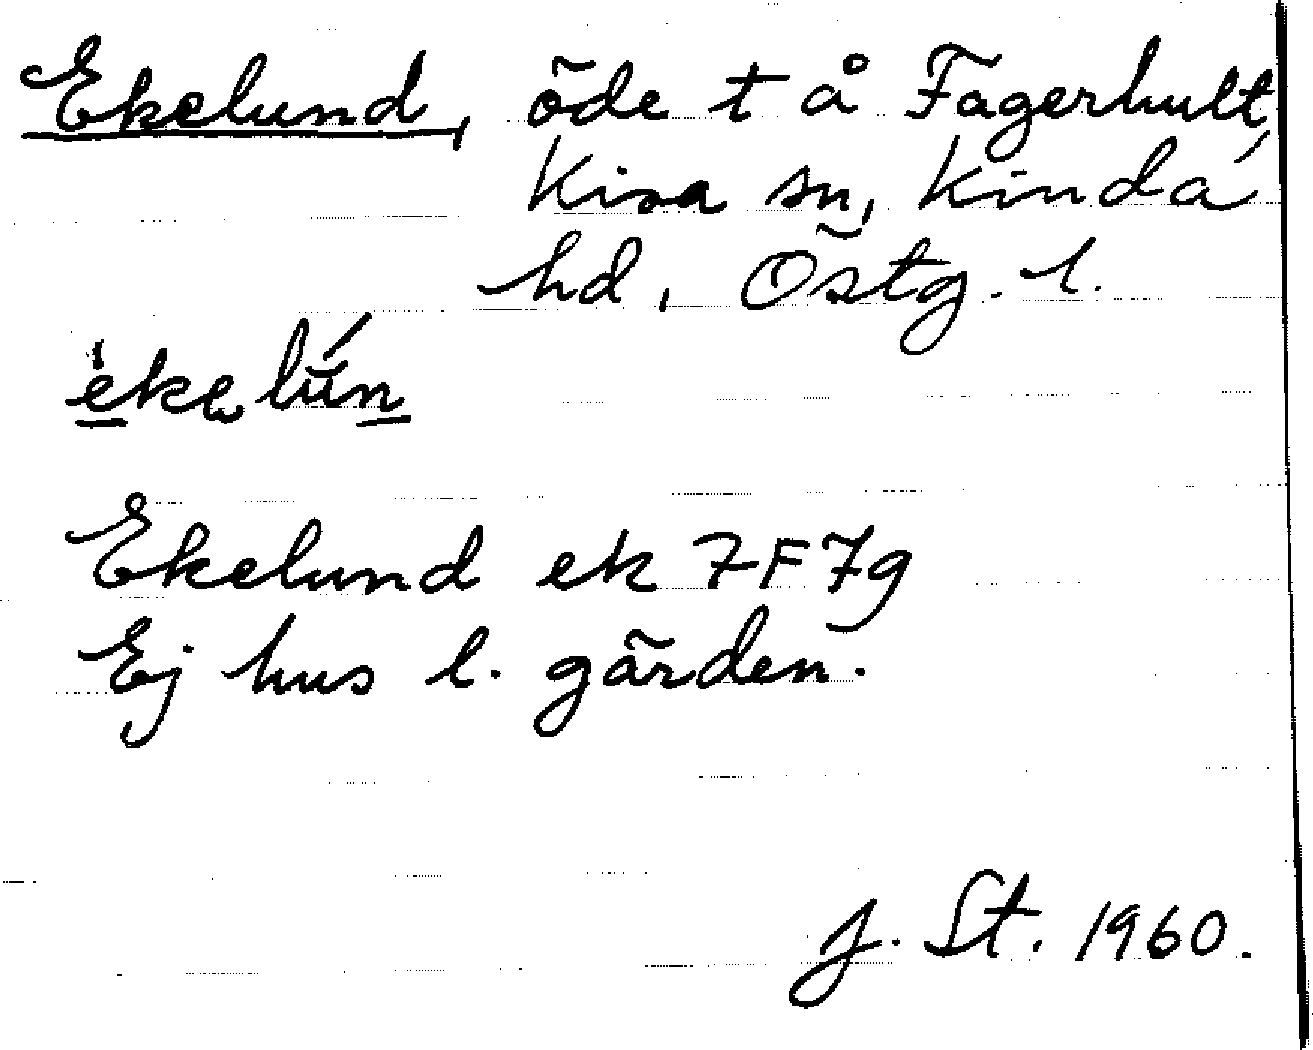 Ekelund, öde t å Fagerhult,
Kisa sn, Kinda
hd, Östg. l.
èkelún
Ekelund ek 7F7g
Ej hus l. gärden.
J. St. 1960.